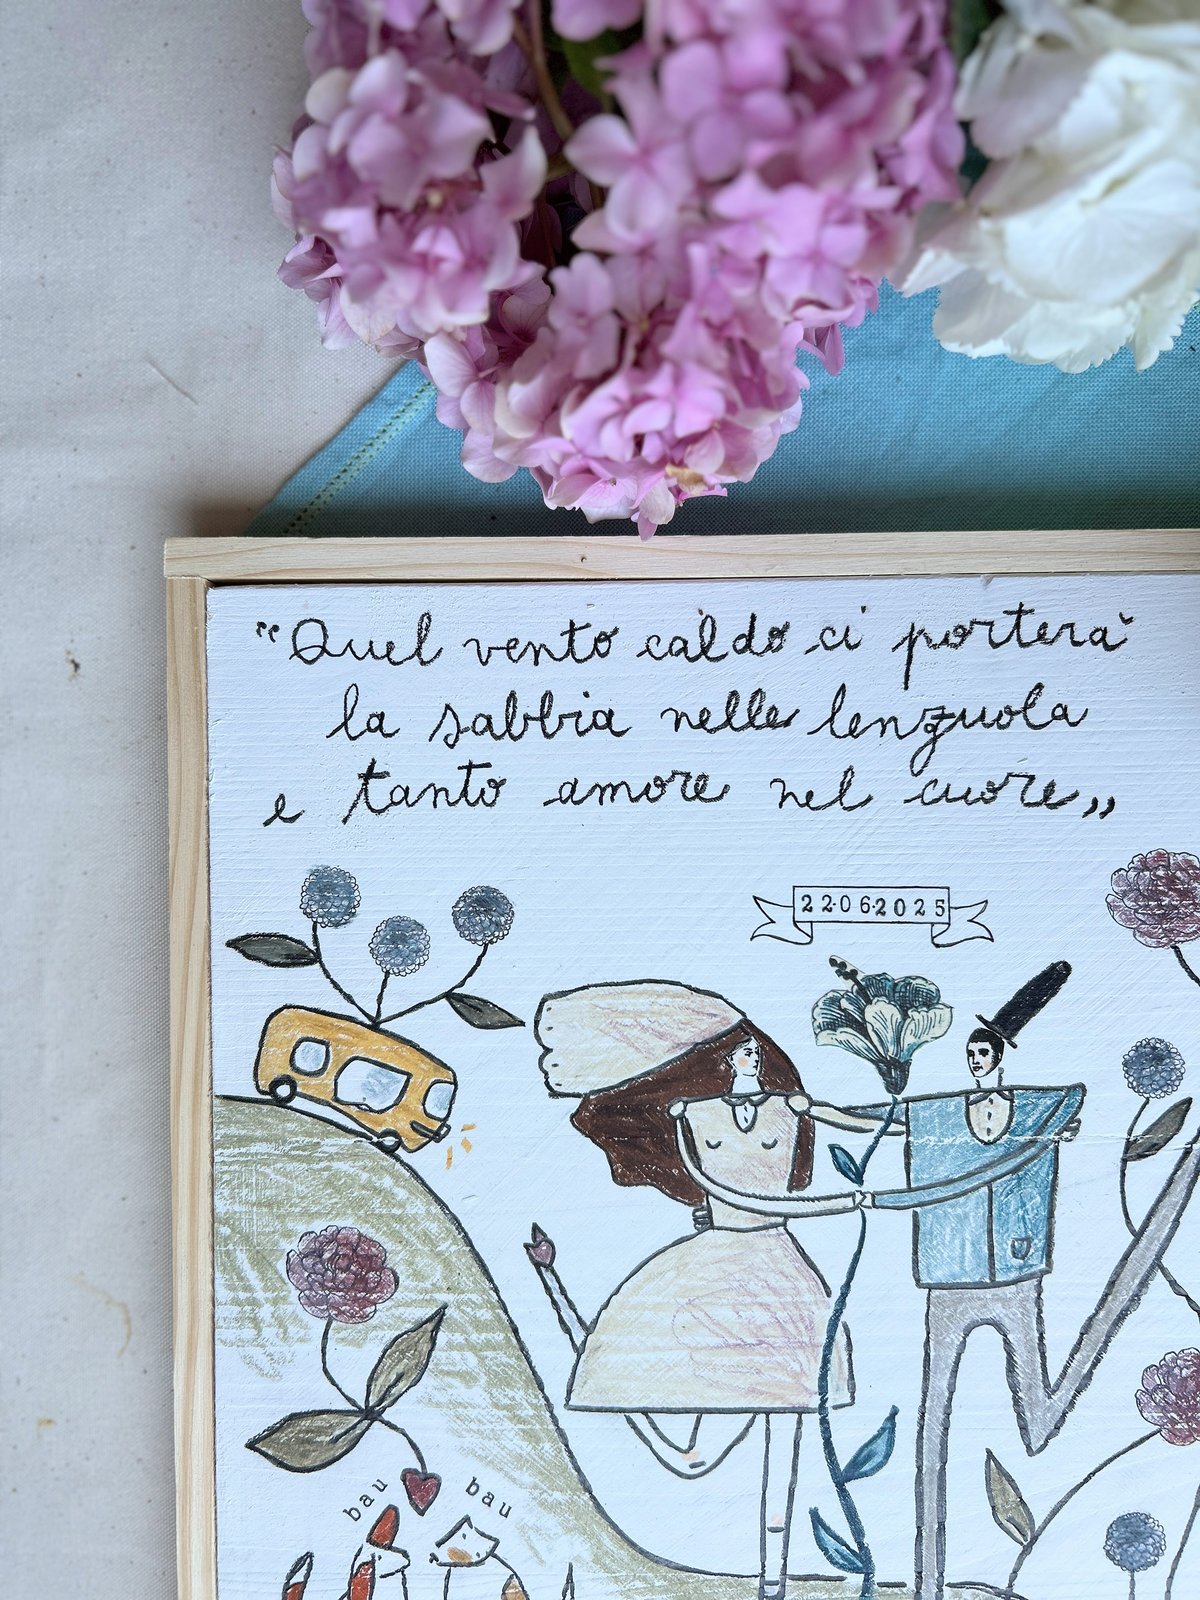 “Quel vento caldo ci porterà
la sabbia nelle lenzuola
e tanto amore nel cuore„
22·06·2025
bau
bau